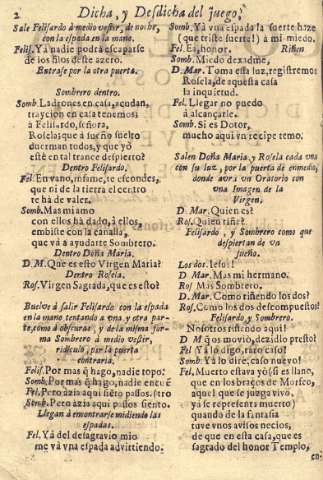 2 Dicha, y Desdicha del juego,
Sale Felisardo à medio vestir, de noche,
con la espada en la mano.
Fel. Yà nadie podrá escaparse
de los filos deste azero.
Entrase por la otra puerta.
Sombrero dentro.
Somb. Ladrones en casa, acudan,
traycion en casa tenemos;
à Felisardo, señora,
Rosela; que à sueño suelto
duerman todos, y que yo
estè en tal trance despierto?
Dentro Felisardo.
Fel. En vano, infame, te escondes,
que ni de la tierra el centro
te ha de valer.
Somb. Mas mi amo
con ellos hà dado, à ellos,
embiste con la canalla,
que và à ayudarte Sombrero.
Dentro Doña Maria.
D. M. Que es esto Virgen Maria?
Dentro Rosela.
Ros. Virgen Sagrada, que es esto?
Buelve à salir Felisardo con la espada
en la mano tentando a una y otra par-
te, como à obscuras, y de la misma for-
ma Sombrero à medio vestir,
ridiculo, por la puerta
contraria.
Felis. Por mas q̃ hago, nadie topo.
Somb. Por mas q̃ hago, nadie encuẽ
Fel. Pero àzia aqui siẽto passos. (tro
Somb. Pero àzia aqui passos siento.
Llegan à encontrarse midiendo las
espadas.
Fel. Yà del desagravio mio
me và vna espada advirtiendo.
Somb. Yà vna espada la suerte haze
(que triste suerte!) à mi miedo.
Fel. Es, honor. Riñen
Somb. Miedo dexadme,
D. Mar. Toma esta luz, registremos
Rosela, de aquesta casa
la inquietud.
Fel. Llegar no puedo
à alcançarle.
Somb. Si es Dotor,
mucho aqui vn recipe temo.
Salen Doña Maria, y Rosela cada una
con su luz, por la puerta de enmedio,
donde avrà un Oratorio con
una Imagen de la
Virgen.
D. Mar. Quien es?
Ros. Quien riñe?
Felisardo, y Sombrero como que
despiertan de un
sueño.
Los dos. Iesus!
D. Mar. Mas mi hermano.
Ros. Mas Sombrero.
D. Mar. Como riñendo los dos?
Ros. Como los dos descompuestos?
Felisardo, y Sombrero.
Nosotros riñendo aqui!
D M q̃ os moviò, dezidlo presto!
Fel Yà lo digo, raro caso!
Somb. Yà lo dirè, caso nuevo!
Fel, Muerto estava yo (si es llano,
que en los braços de Morfeo,
aquel que se juzga vivo,
yà se representa muerto)
quando de la fantasia
tuve vnos avisos necios,
de que en esta casa, que es
sagrado del honor Templo,
en-